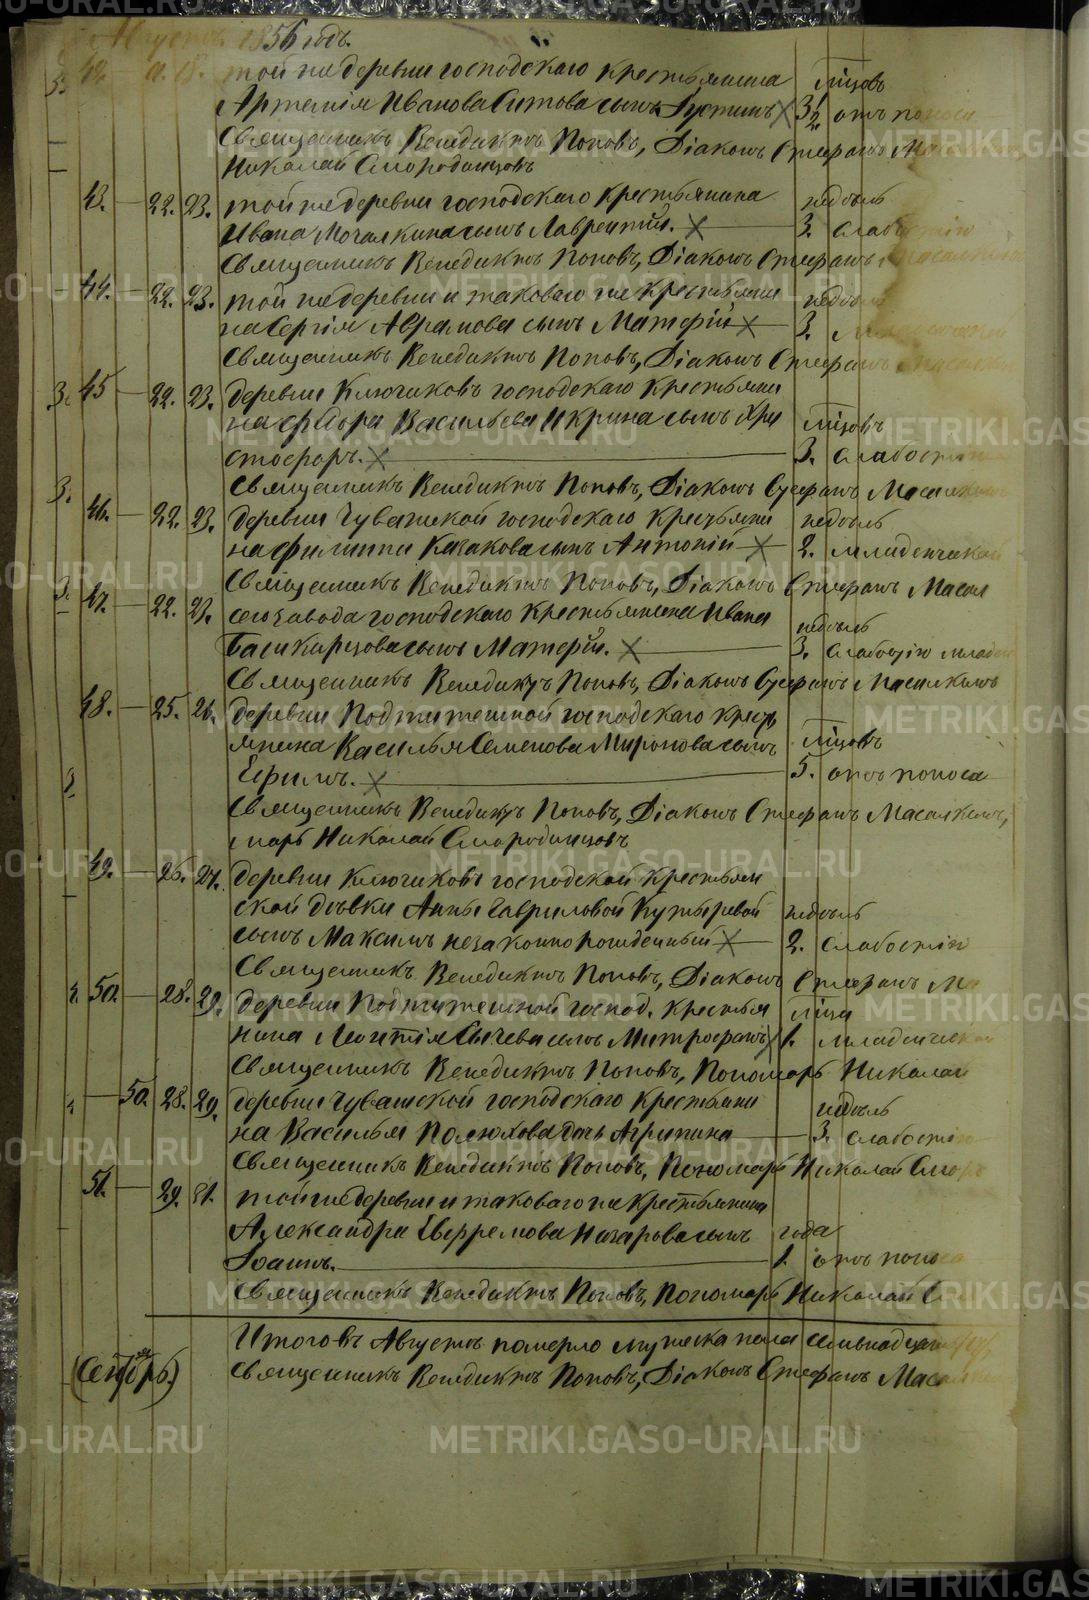 Августъ 1856 годъ.
42. 18. той же деревни господскаго крестьянина
Артемія Иванова Ситова сынъ Іустинъ 3 1/2 м-цовъ отъ поноса
Священникъ Венедиктъ Поповъ, Діаконъ Стефанъ
Николай Смородинцовъ
43. 22. 23. той же деревни господскаго крестьянина недѣль
Ивана Мочалкина сынъ Лаврентій. 3. слабостію
Священникъ Венедиктъ Поповъ, Діаконъ Стефанъ Масалкинъ
44. 22. 23. той же деревни и таковаго же крестьяни недѣль
на Сергія Аврамова сынъ Матѳій 3.
Священникъ Венедиктъ Поповъ, Діаконъ Стефанъ
3. 45 22. 23. деревни Ключиковъ господскаго крестьяни
на Ѳедора Васильева Икрина сынъ Хри м-цовъ
стофоръ. 3. слабостію
Священникъ Венедиктъ Поповъ, Діаконъ Стефанъ Масалкинъ
3. 46. 22. 23. деревни Чувашской господскаго крестьяни недѣль
на Филиппа Казакова сынъ Антоній 2. младенческой
Священникъ Венедиктъ Поповъ, Діаконъ Стефанъ Масал
3. 47. 22. 23. сего завода господскаго крестьянина Ивана недѣль
Башкирцова сынъ Матѳій. 3. слабостію младен
Священникъ Венедиктъ Поповъ, Діаконъ Стефанъ Масалкинъ
48. 25. 26. деревни Подгитешной господскаго кресть
янина Василья Семенова Миронова сынъ м-цовъ
Ефимъ. 5. отъ поноса
Священникъ Венедиктъ Поповъ, Діаконъ Стефанъ Масалкинъ,
марь Николай Смородинцовъ
49. 26. 27. деревни Ключиковъ господской крестьян
ской дѣвки Анны Гавриловой Путыревой недѣль
сынъ Максимъ незаконнорожденный 2. слабостію
Священникъ Венедиктъ Поповъ, Діаконъ Стефанъ Ма
50. 28. 29. деревни Подгитешной господ. крестья м-ца
нина Леонтія Сычева сынъ Митрофанъ 1. младенческой
Священникъ Венедиктъ Поповъ, Пономарь Николай
50. 28. 29. деревни Чувашской господскаго крестьяни недѣль
на Василья Полюхова дочь Агрипина 3. слабостію
Священникъ Венедиктъ Поповъ, Пономарь Николай Смор
51. 29. 31. той же деревни и таковаго же крестьянина
Александра Евфремова Назарова сынъ года
Іоаннъ. 1. отъ поноса
Священникъ Венедиктъ Поповъ, Пономарь Николай С
Итого въ Августѣ померло мужеска пола семьнадцать
(Сентябрь) Священникъ Венедиктъ Поповъ, Діаконъ Стефанъ Масалкинъ
METRIKI.GASO-URAL.RU